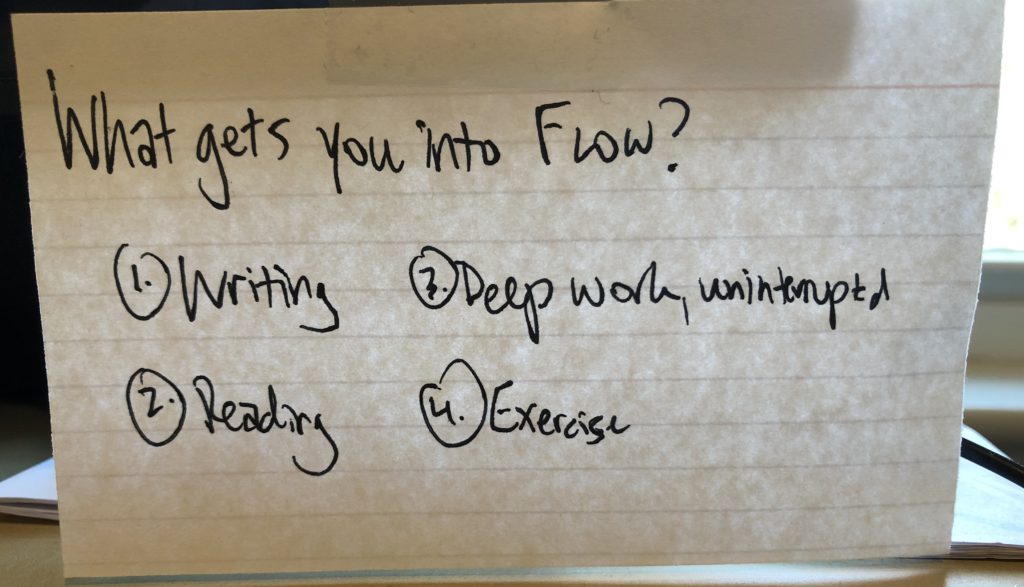 What gets you into Flow?
1. Writing
2. Reading
3. Deep work, uninterruptd
4. Exercise